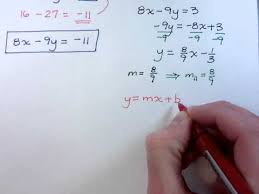 16 - 27 = -11
8x - 9y = -11
8x - 9y = 3
-9y = -8x + 3
-9 -9 -9
y = 8/9 x - 1/3
m = 8/9 ⇒ m₁₁ = 8/9
y = mx + b